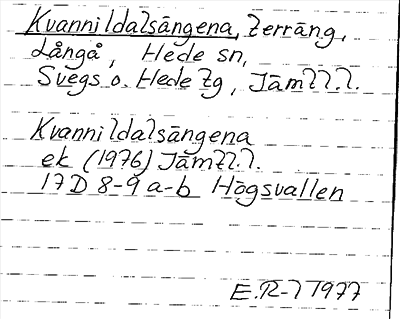 Kvannildalsängena, terräng,
Långå, Hede sn,
Svegs o. Hede tg, Jämtl. l.
Kvannildalsängena
ek (1976) Jämtl. l.
17D 8-9 a-b Högsvallen
E. R-l 1977